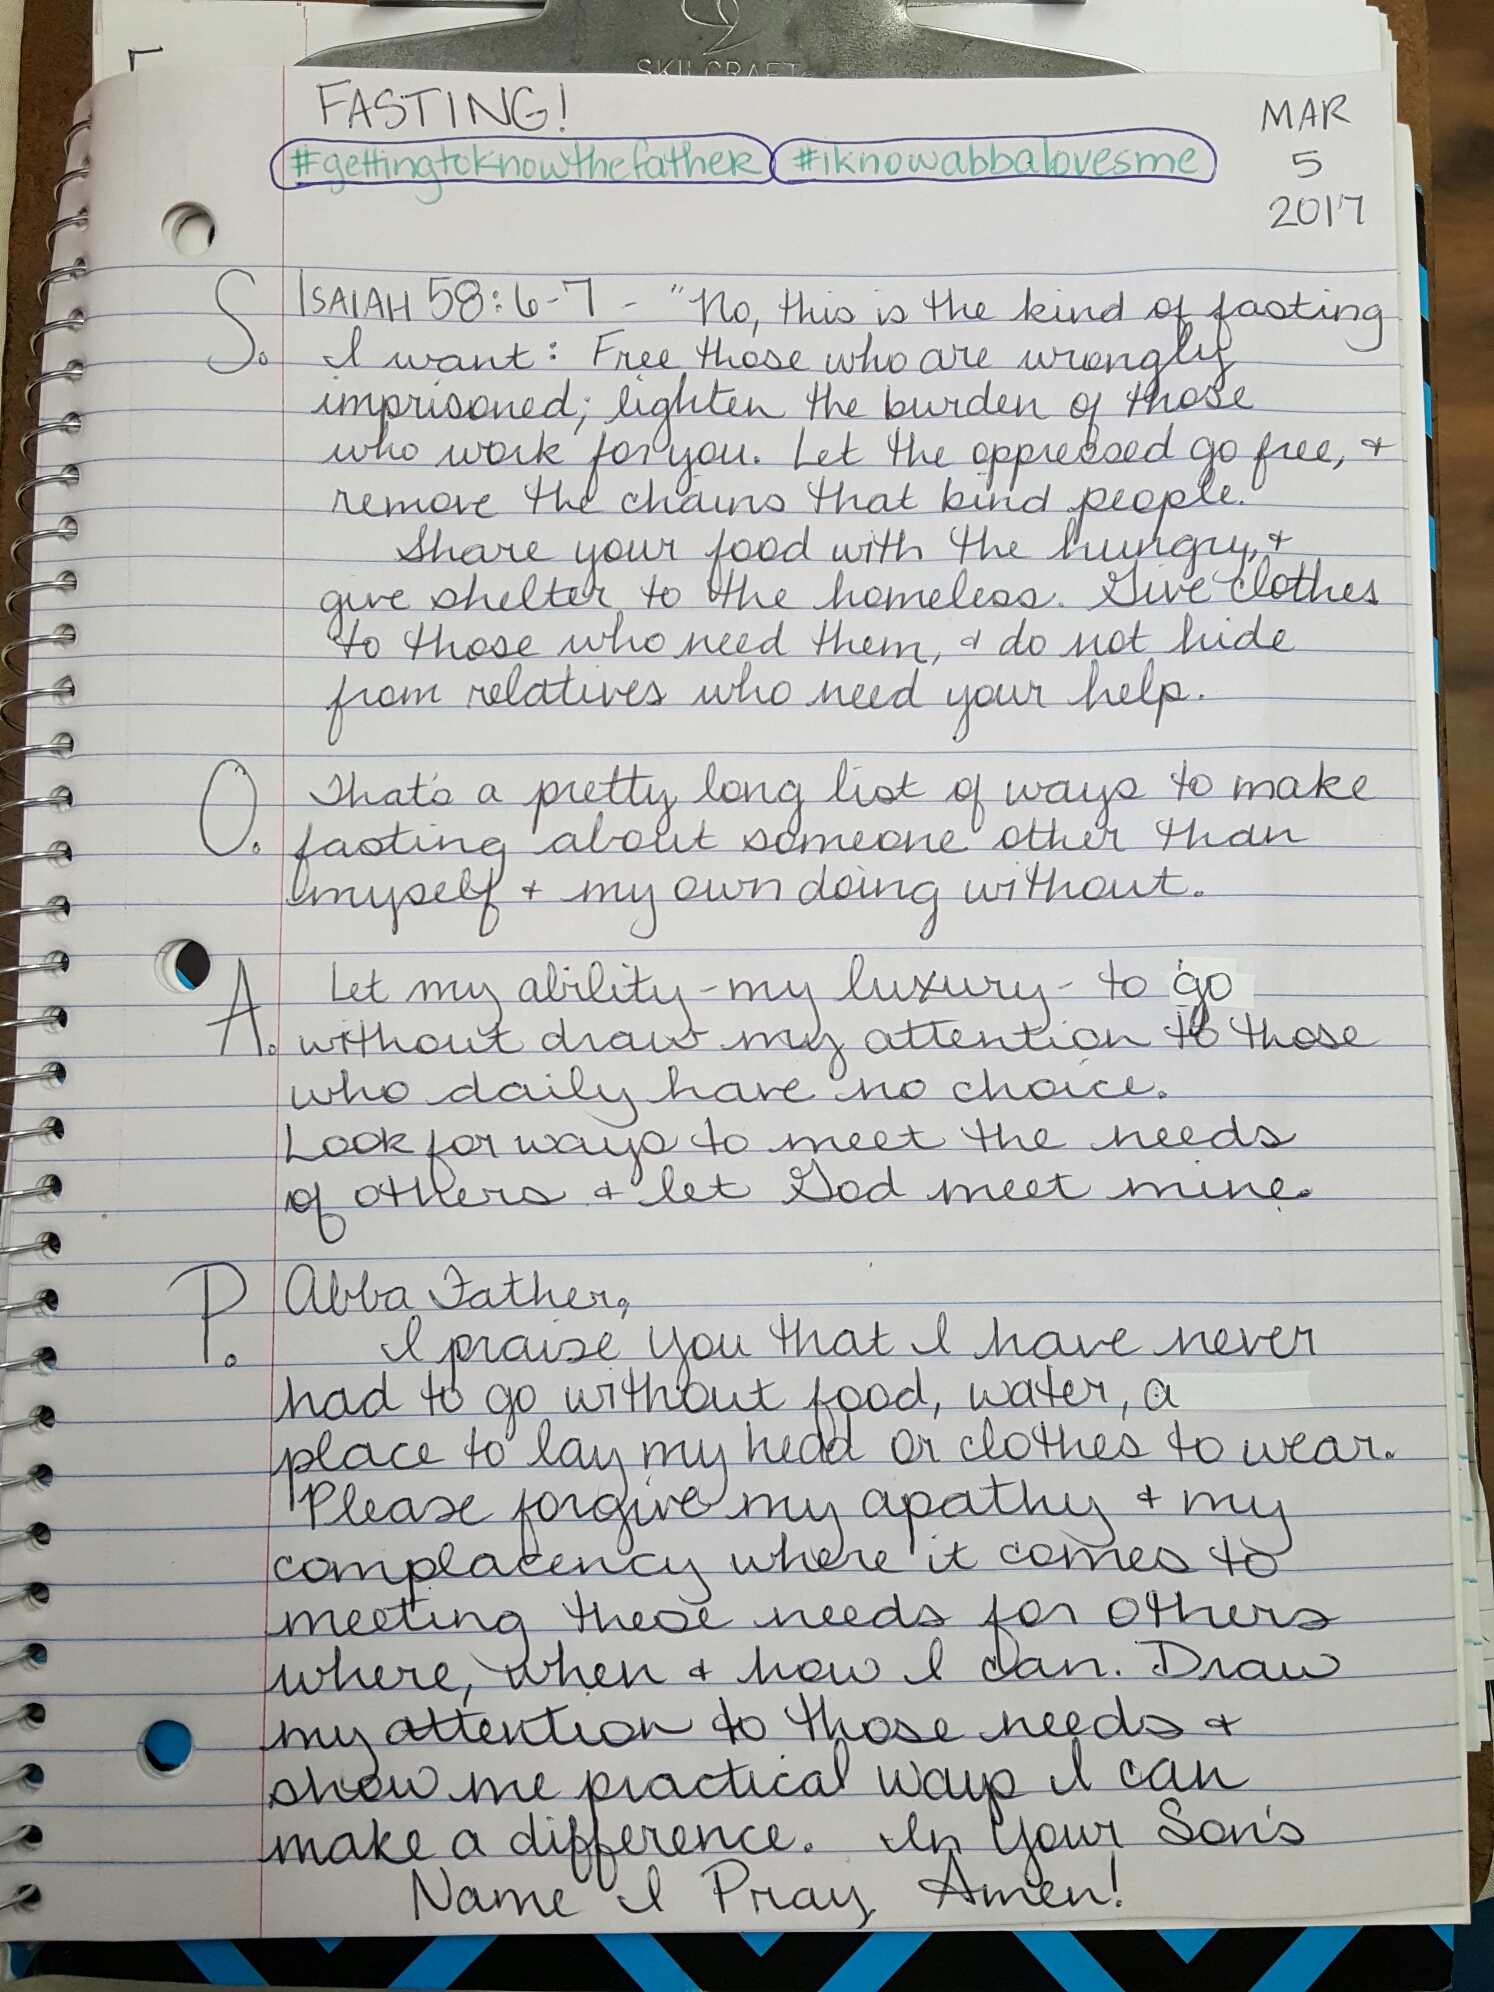 SKILCRAFT
FASTING!
#gettingtoknowthefather #iknowabbalovesme
MAR
5
2017
S. ISAIAH 58:6-7 - "No, this is the kind of fasting
I want: Free those who are wrongly
imprisoned; lighten the burden of those
who work for you. Let the oppressed go free, +
remove the chains that bind people.
Share your food with the hungry, +
give shelter to the homeless. Give clothes
to those who need them, + do not hide
from relatives who need your help.
O. That's a pretty long list of ways to make
fasting about someone other than
myself + my own doing without.
A. Let my ability - my luxury - to go
without draw my attention to those
who daily have no choice.
Look for ways to meet the needs
of others + let God meet mine.
P. Abba Father,
I praise you that I have never
had to go without food, water, a
place to lay my head or clothes to wear.
Please forgive my apathy + my
complacency where it comes to
meeting these needs for others
where, when + how I can. Draw
my attention to those needs +
show me practical ways I can
make a difference. In Your Son's
Name I Pray, Amen!